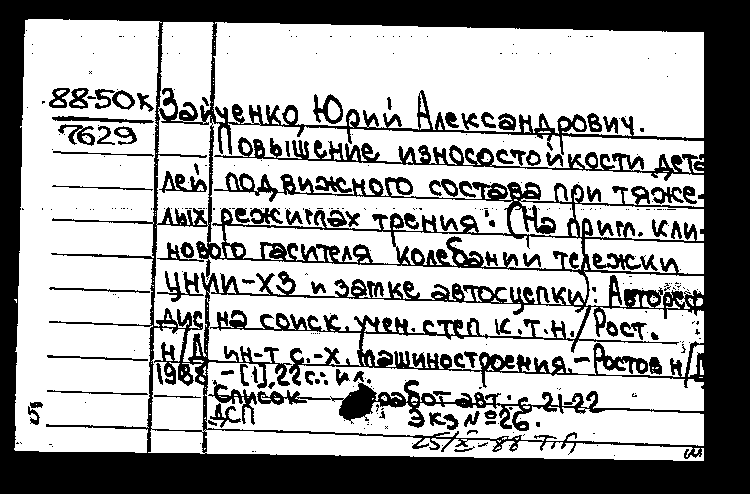 88-50к
7629
Зайченко, Юрий Александрович.
Повышение износостойкости дета
лей подвижного состава при тяже-
лых режимах трения: (На прим. кли-
нового гасителя колебаний тележки
ЦНИИ-Х3 и замке автосцепки): Автореф
дис на соиск. учен. степ. к.т.н./Рост.
н/Д ин-т с.-х. машиностроения. - Ростов н/Д
1988. - [1], 22 с.: ил.
Список работ авт.: с. 21-22
ДСП Экз № 26.
25/X-88 Т.П